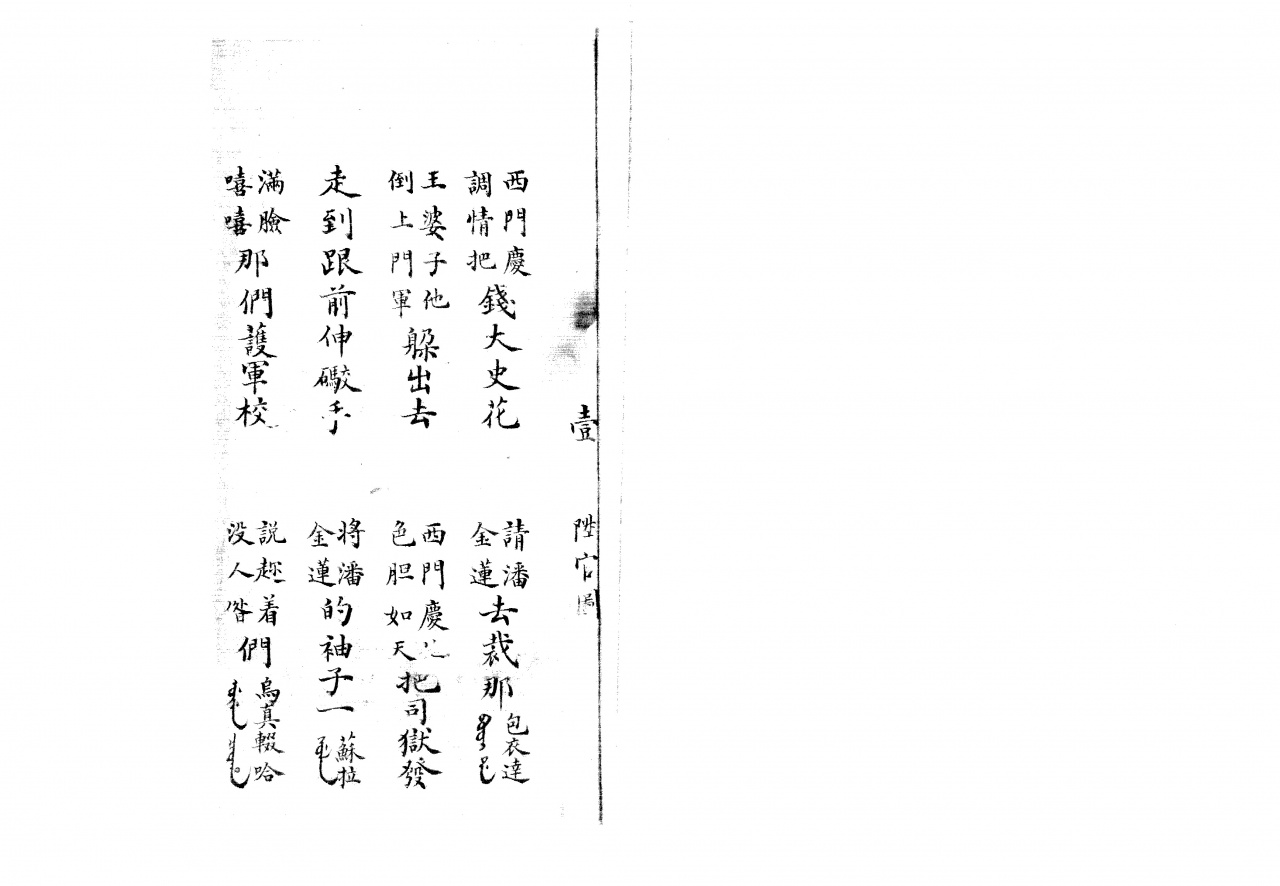 壹 陞官圖
西門慶調情把錢大史花
請潘金蓮去裁那包衣達 ᠪᠣᠣᡳ ᡩᠠ
王婆子他倒上門軍躲出去
西門慶色胆如天把司獄發
走到跟前伸礮手
將潘金蓮的袖子一蘇拉 ᠰᡠᠯᠠ
滿臉嘻嘻那們護軍校
說趂着沒人喒們烏真輟哈 ᡠᠵᡝᠨ ᠴᠣᠣᡥᠠ